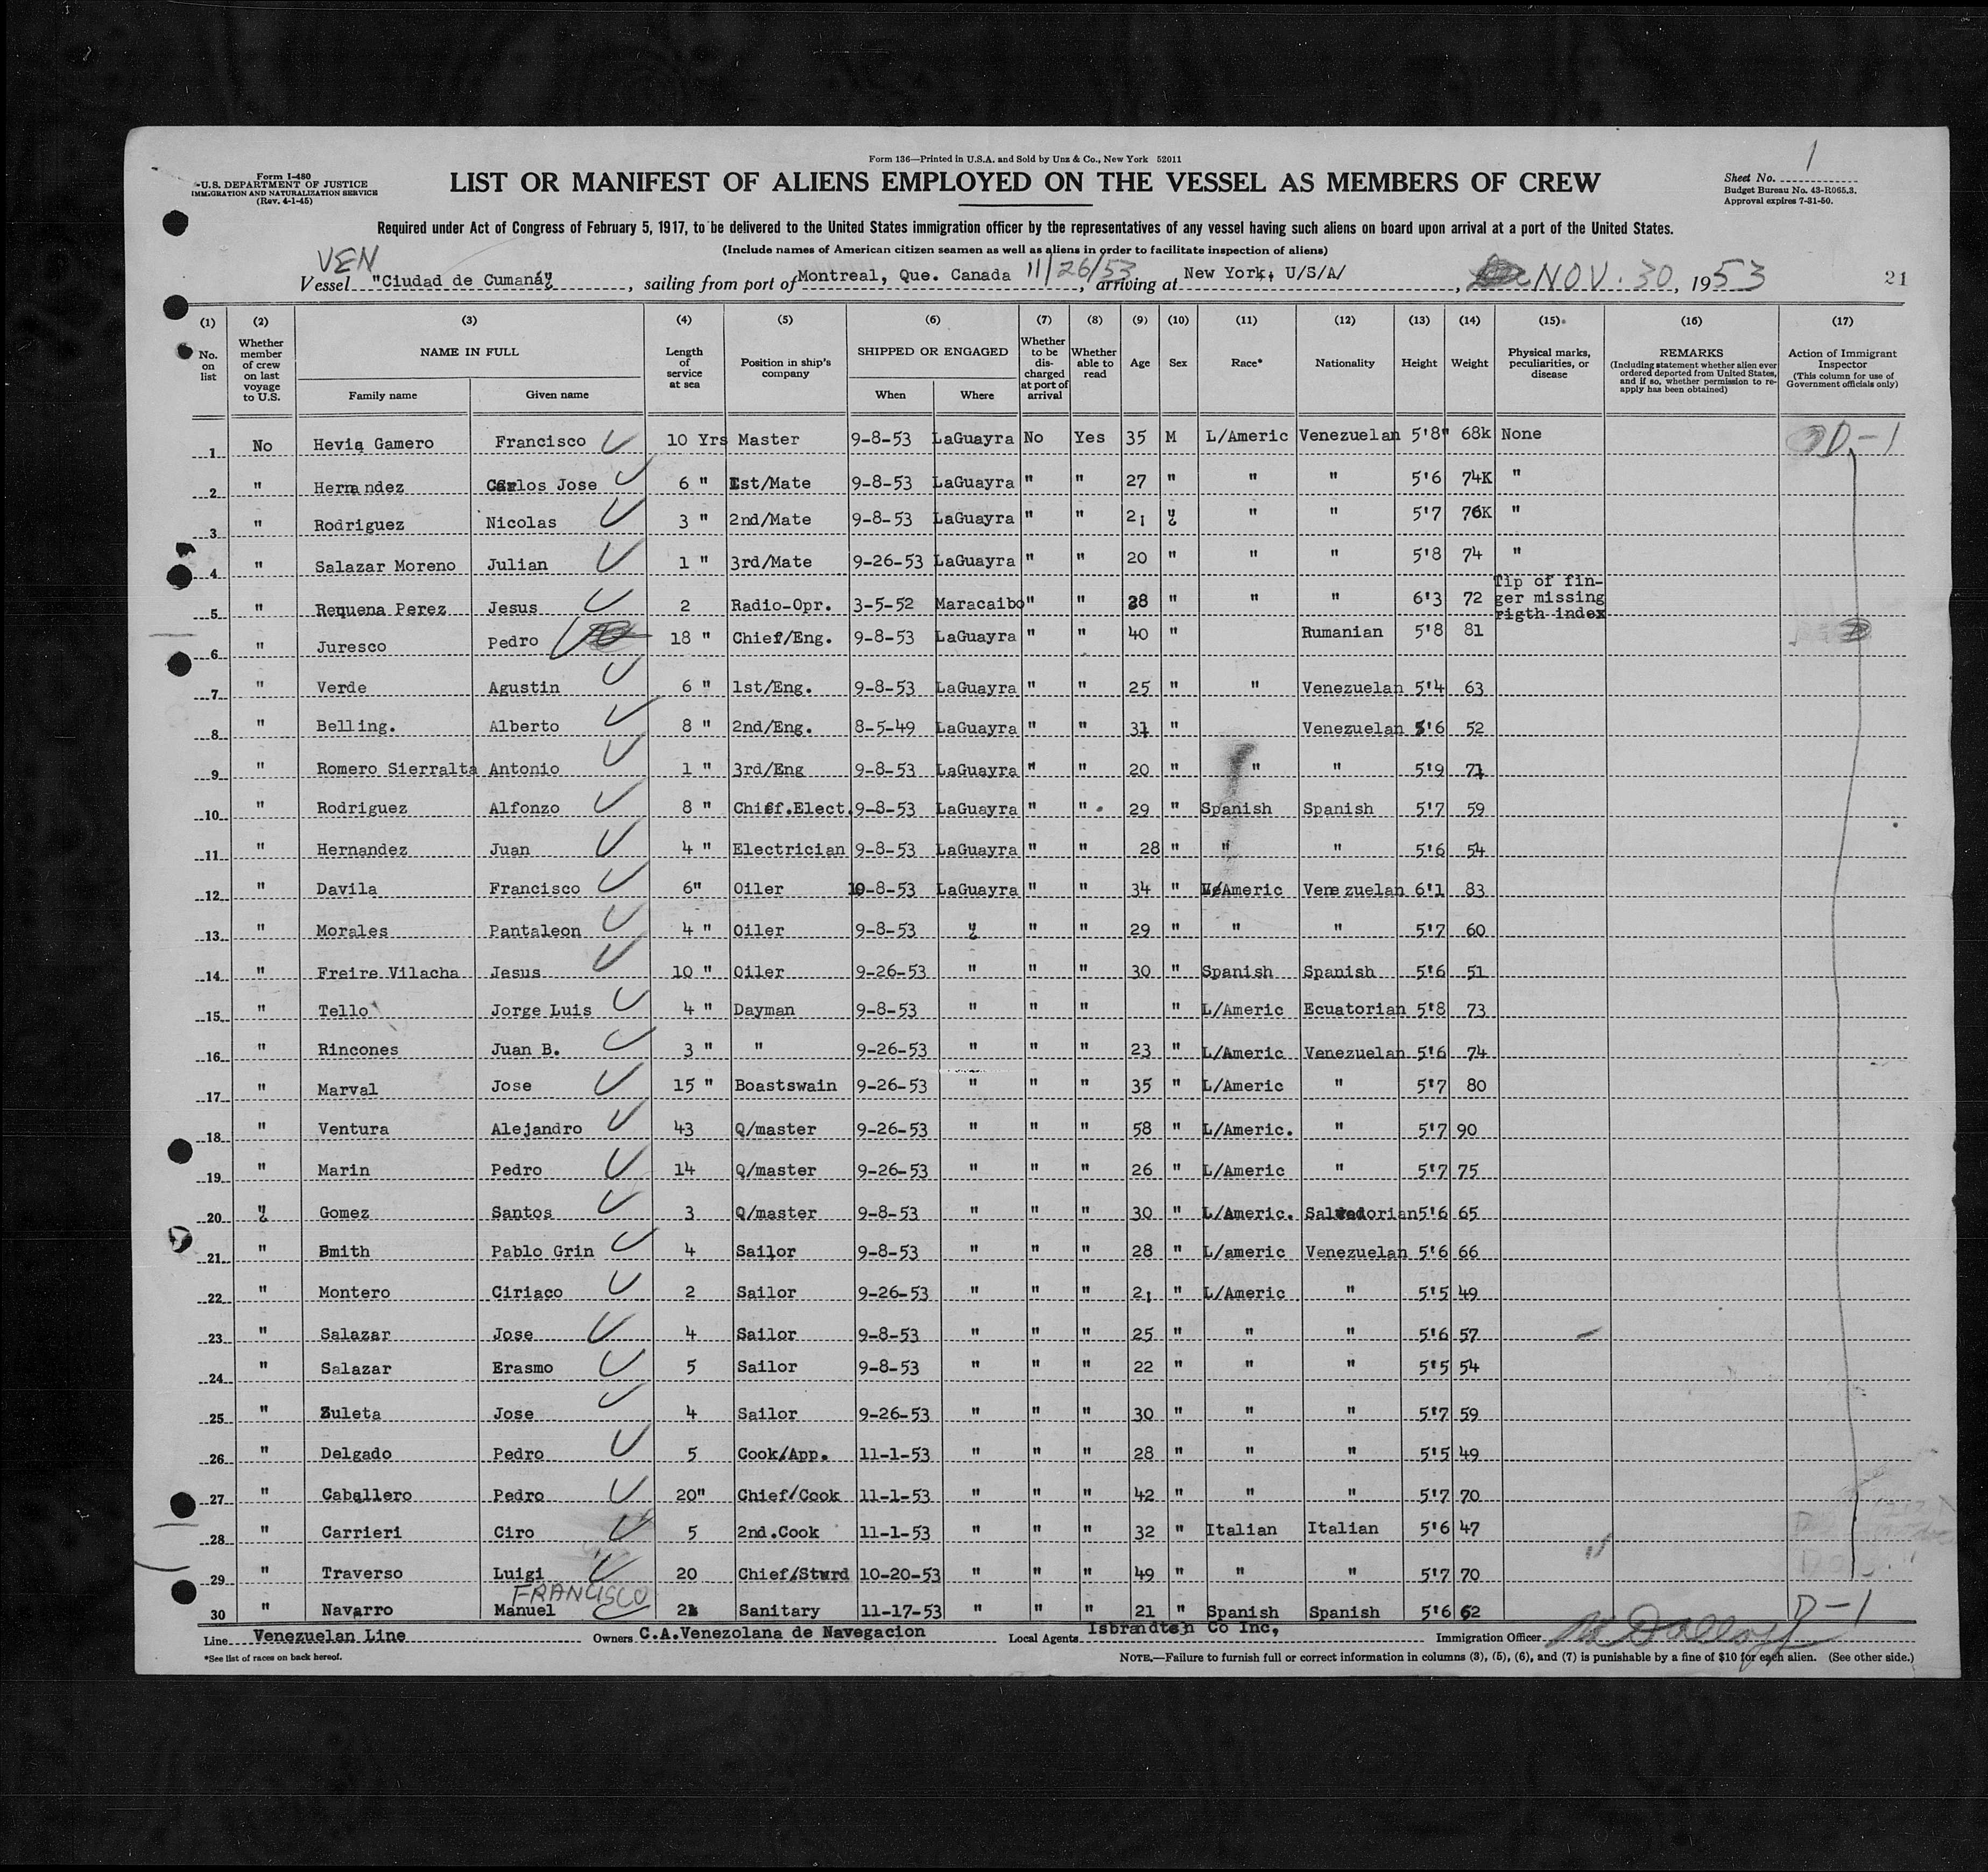 Form 136—Printed in U.S.A. and Sold by Unz & Co., New York 52011
1
Form I-480
U.S. DEPARTMENT OF JUSTICE
IMMIGRATION AND NATURALIZATION SERVICE
(Rev. 4-1-45)
LIST OR MANIFEST OF ALIENS EMPLOYED ON THE VESSEL AS MEMBERS OF CREW
Sheet No.
Budget Bureau No. 43-R065.3.
Approval expires 7-31-50.
Required under Act of Congress of February 5, 1917, to be delivered to the United States immigration officer by the representatives of any vessel having such aliens on board upon arrival at a port of the United States.
(Include names of American citizen seamen as well as aliens in order to facilitate inspection of aliens)
VEN
Vessel "Ciudad de Cumaná", sailing from port of Montreal, Que. Canada 11/26/53, arriving at New York, U/S/A/, NOV. 30, 1953 21
(1) (2) (3) (4) (5) (6) (7) (8) (9) (10) (11) (12) (13) (14) (15) (16) (17)
No. on list
Whether member of crew on last voyage to U.S.
NAME IN FULL
Family name Given name
Length of service at sea
Position in ship's company
SHIPPED OR ENGAGED
When Where
Whether to be discharged at port of arrival
Whether able to read
Age Sex Race* Nationality Height Weight
Physical marks, peculiarities, or disease
REMARKS
(Including statement whether alien ever ordered deported from United States, and if so, whether permission to reapply has been obtained)
Action of Immigrant Inspector
(This column for use of Government officials only)
1 No Hevia Gamero Francisco 10 Yrs Master 9-8-53 LaGuayra No Yes 35 M L/Americ Venezuelan 5'8" 68k None D-1
2 " Hernandez Carlos Jose 6 " 1st/Mate 9-8-53 LaGuayra " " 27 " " " 5'6 74K "
3 " Rodriguez Nicolas 3 " 2nd/Mate 9-8-53 LaGuayra " " 21 " " " 5'7 76K "
4 " Salazar Moreno Julian 1 " 3rd/Mate 9-26-53 LaGuayra " " 20 " " " 5'8 74 "
5 " Requena Perez Jesus 2 Radio-Opr. 3-5-52 Maracaibo " " 28 " " " 6'3 72 Tip of finger missing rigth index
6 " Juresco Pedro 18 " Chief/Eng. 9-8-53 LaGuayra " " 40 " Rumanian 5'8 81
7 " Verde Agustin 6 " 1st/Eng. 9-8-53 LaGuayra " " 25 " " Venezuelan 5'4 63
8 " Belling. Alberto 8 " 2nd/Eng. 8-5-49 LaGuayra " " 31 " Venezuelan 5'6 52
9 " Romero Sierralta Antonio 1 " 3rd/Eng 9-8-53 LaGuayra " " 20 " " " 5'9 71
10 " Rodriguez Alfonzo 8 " Chief.Elect. 9-8-53 LaGuayra " " 29 " Spanish Spanish 5'7 59
11 " Hernandez Juan 4 " Electrician 9-8-53 LaGuayra " " 28 " " " 5'6 54
12 " Davila Francisco 6" Oiler 10-8-53 LaGuayra " " 34 " L/Americ Venezuelan 6'1 83
13 " Morales Pantaleon 4 " Oiler 9-8-53 " " " 29 " " " 5'7 60
14 " Freire Vilacha Jesus 10 " Oiler 9-26-53 " " " 30 " Spanish Spanish 5'6 51
15 " Tello Jorge Luis 4 " Dayman 9-8-53 " " " " L/Americ Ecuatorian 5'8 73
16 " Rincones Juan B. 3 " " 9-26-53 " " " 23 " L/Americ Venezuelan 5'6 74
17 " Marval Jose 15 " Boastswain 9-26-53 " " " 35 " L/Americ " 5'7 80
18 " Ventura Alejandro 43 Q/master 9-26-53 " " " 58 " L/Americ. " 5'7 90
19 " Marin Pedro 14 Q/master 9-26-53 " " " 26 " L/Americ " 5'7 75
20 " Gomez Santos 3 Q/master 9-8-53 " " " 30 " L/Americ. Salvadorian 5'6 65
21 " Smith Pablo Grin 4 Sailor 9-8-53 " " " 28 " L/americ Venezuelan 5'6 66
22 " Montero Ciriaco 2 Sailor 9-26-53 " " " 21 " L/Americ " 5'5 49
23 " Salazar Jose 4 Sailor 9-8-53 " " " 25 " " " 5'6 57
24 " Salazar Erasmo 5 Sailor 9-8-53 " " " 22 " " " 5'5 54
25 " Zuleta Jose 4 Sailor 9-26-53 " " " 30 " " " 5'7 59
26 " Delgado Pedro 5 Cook/App. 11-1-53 " " " 28 " " " 5'5 49
27 " Caballero Pedro 20" Chief/Cook 11-1-53 " " " 42 " " " 5'7 70
28 " Carrieri Ciro 5 2nd.Cook 11-1-53 " " " 32 " Italian Italian 5'6 47
29 " Traverso Luigi 20 Chief/Stwrd 10-20-53 " " " 49 " " " 5'7 70
FRANCISCO
30 " Navarro Manuel 2 Sanitary 11-17-53 " " " 21 " Spanish Spanish 5'6 62 D-1
Line Venezuelan Line Owners C.A.Venezolana de Navegacion Local Agents Isbrandtsen Co Inc, Immigration Officer
*See list of races on back hereof.
NOTE.—Failure to furnish full or correct information in columns (3), (5), (6), and (7) is punishable by a fine of $10 for each alien. (See other side.)